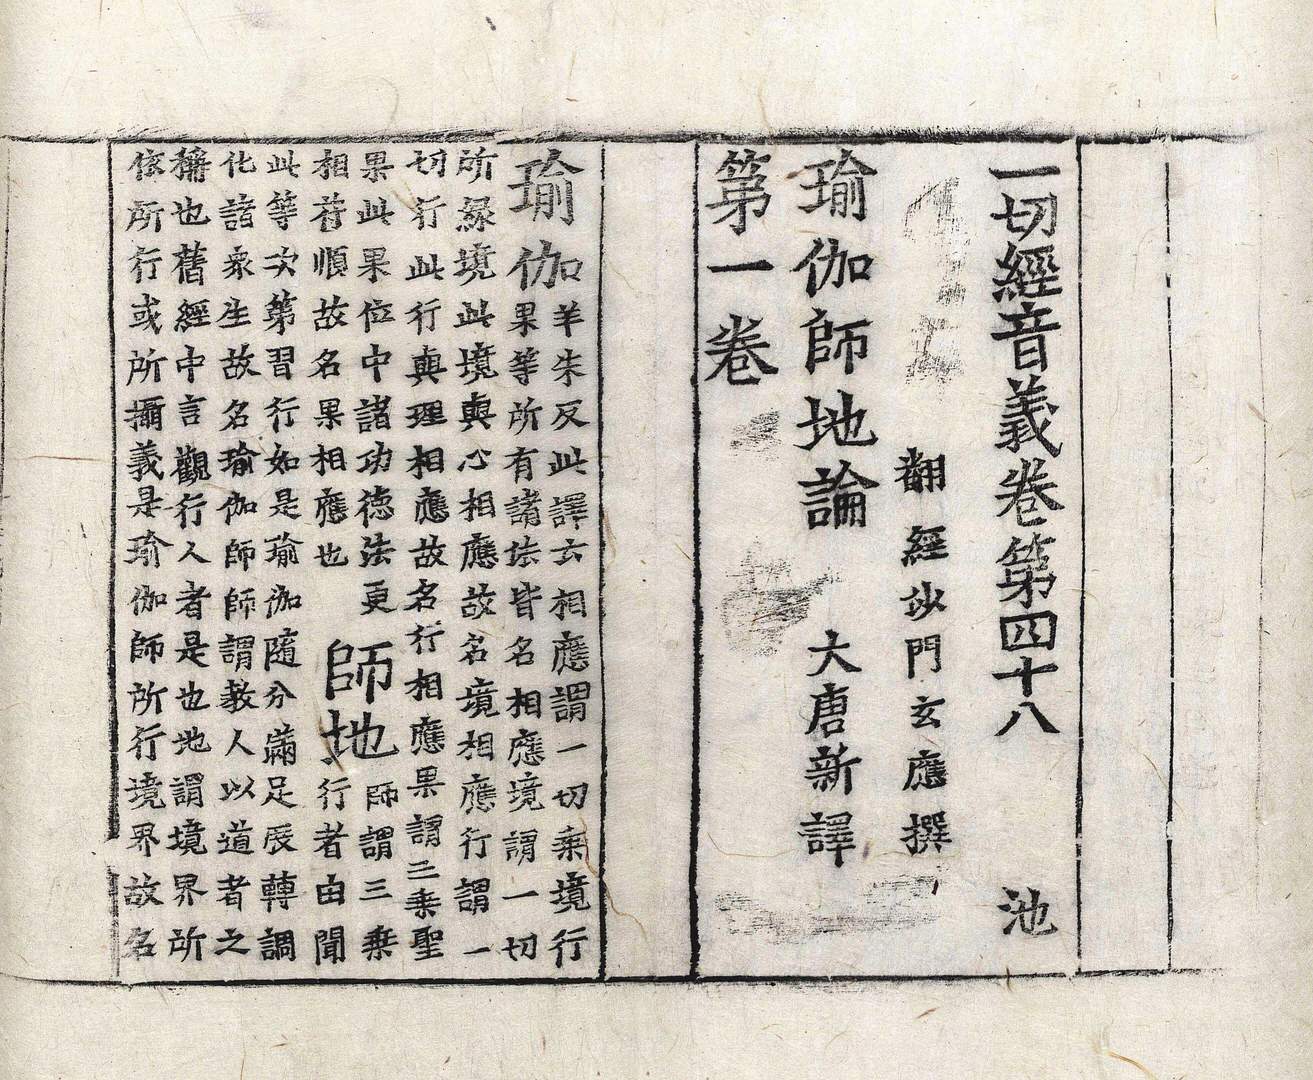 一切經音義卷第四十八 池
翻經沙門玄應撰
瑜伽師地論 大唐新譯
第一卷
瑜伽 羊朱反此譯云相應謂一切乘境行
果等所有諸法皆名相應境謂一切
所緣境此境與心相應故名境相應行謂一
切行此行與理相應故名行相應果謂三乘聖
果此果位中諸功德法更
相苻順故名果相應也
師地 師謂三乘
行者由聞
此等次第習行如是瑜伽隨分滿足展轉調
化諸衆生故名瑜伽師師謂教人以道者之
稱也舊經中言觀行人者是也地謂境界所
依所行或所攝義是瑜伽師所行境界故名